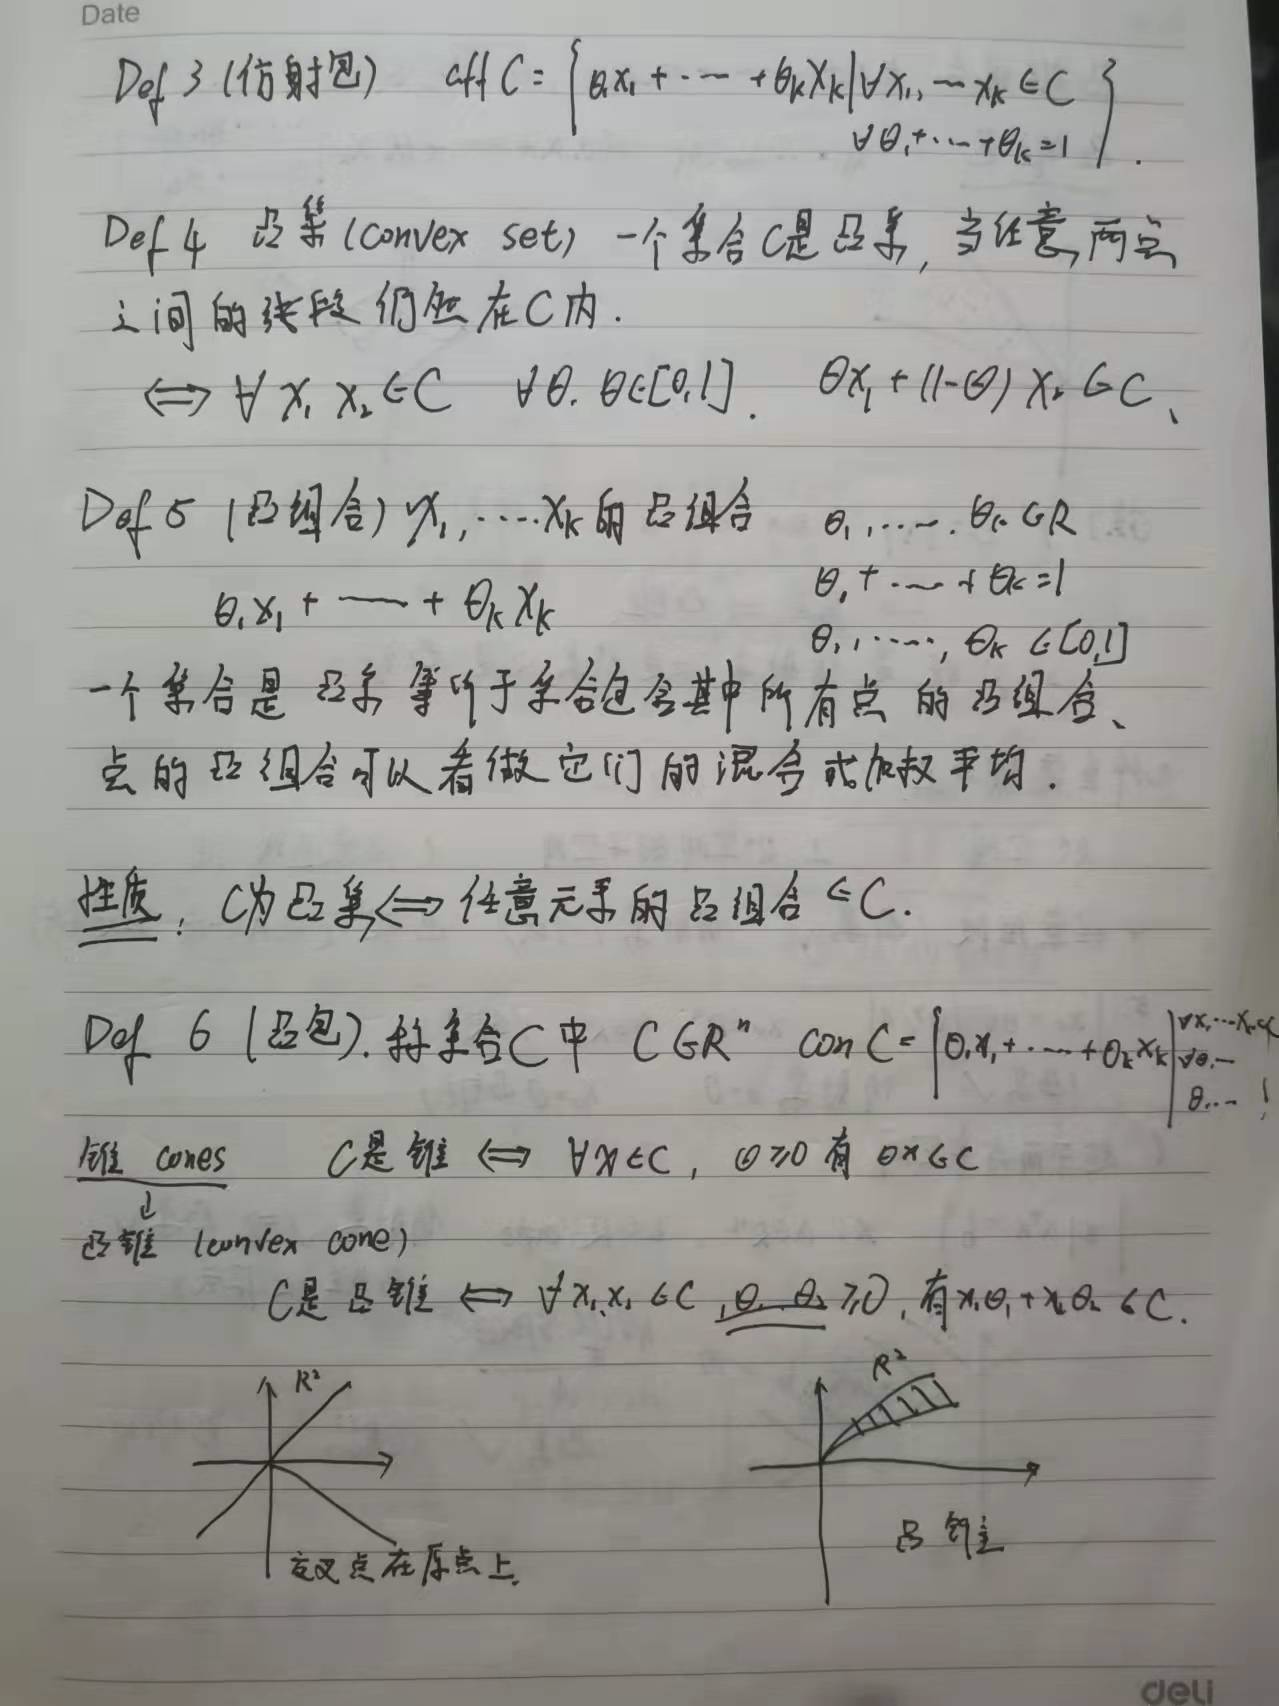 Date
Def 3 (仿射包) aff C = { θ₁x₁ + ··· + θₖxₖ | ∀x₁, ··· xₖ ∈ C
∀θ₁ + ··· + θₖ = 1 } .
Def 4 凸集 (convex set) 一个集合C是凸集, 当任意两点
之间的线段仍然在C内.
⟺ ∀ x₁ x₂ ∈ C ∀θ. θ∈[0,1]. θx₁ + (1-θ) x₂ ∈ C、
Def 5 (凸组合) x₁, ····xₖ 的凸组合 θ₁, ····. θₖ ∈ R
θ₁ + ··· + θₖ = 1
θ₁x₁ + ··· + θₖxₖ
θ₁, ····, θₖ ∈ [0,1]
一个集合是凸集等价于集合包含其中所有点的凸组合、
点的凸组合可以看做它们的混合或加权平均.
性质: C为凸集 ⟺ 任意元素的凸组合 ∈ C.
Def 6 (凸包). 称集合C中 C ∈ Rⁿ con C = { θ₁x₁ + ··· + θₖxₖ | ∀x₁ ··· xₖ ∈ C
∀θ₁ ···
θ ···
锥 cones C是锥 ⟺ ∀x∈C, θ≥0 有 θx∈C
↓
凸锥 (convex cone)
C是凸锥 ⟺ ∀x₁、x₂ ∈ C, θ₁. θ₂ ≥0, 有x₁θ₁ + x₂θ₂ ∈ C.
R² R²
凸锥
交叉点在原点上.
deli